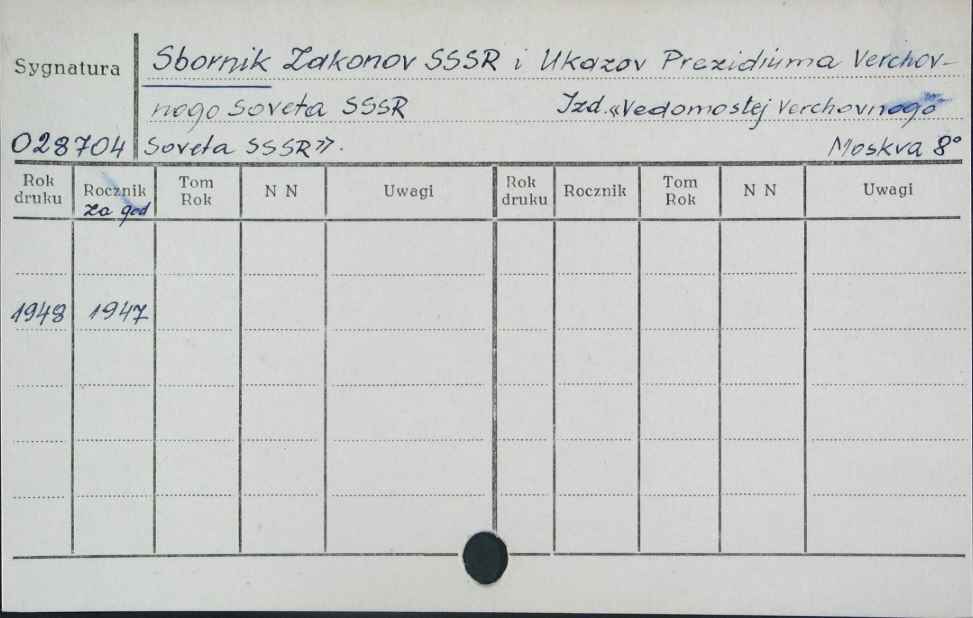 Sygnatura
028704
Sbornik Zakonov SSSR i Ukazov Prezidiuma Verchov-
nogo Soveta SSSR Izd. «Vedomostej Verchovnogo
Soveta SSSR». Moskva 8°
Rok druku Rocznik za god Tom Rok N N Uwagi Rok druku Rocznik Tom Rok N N Uwagi
1948 1947